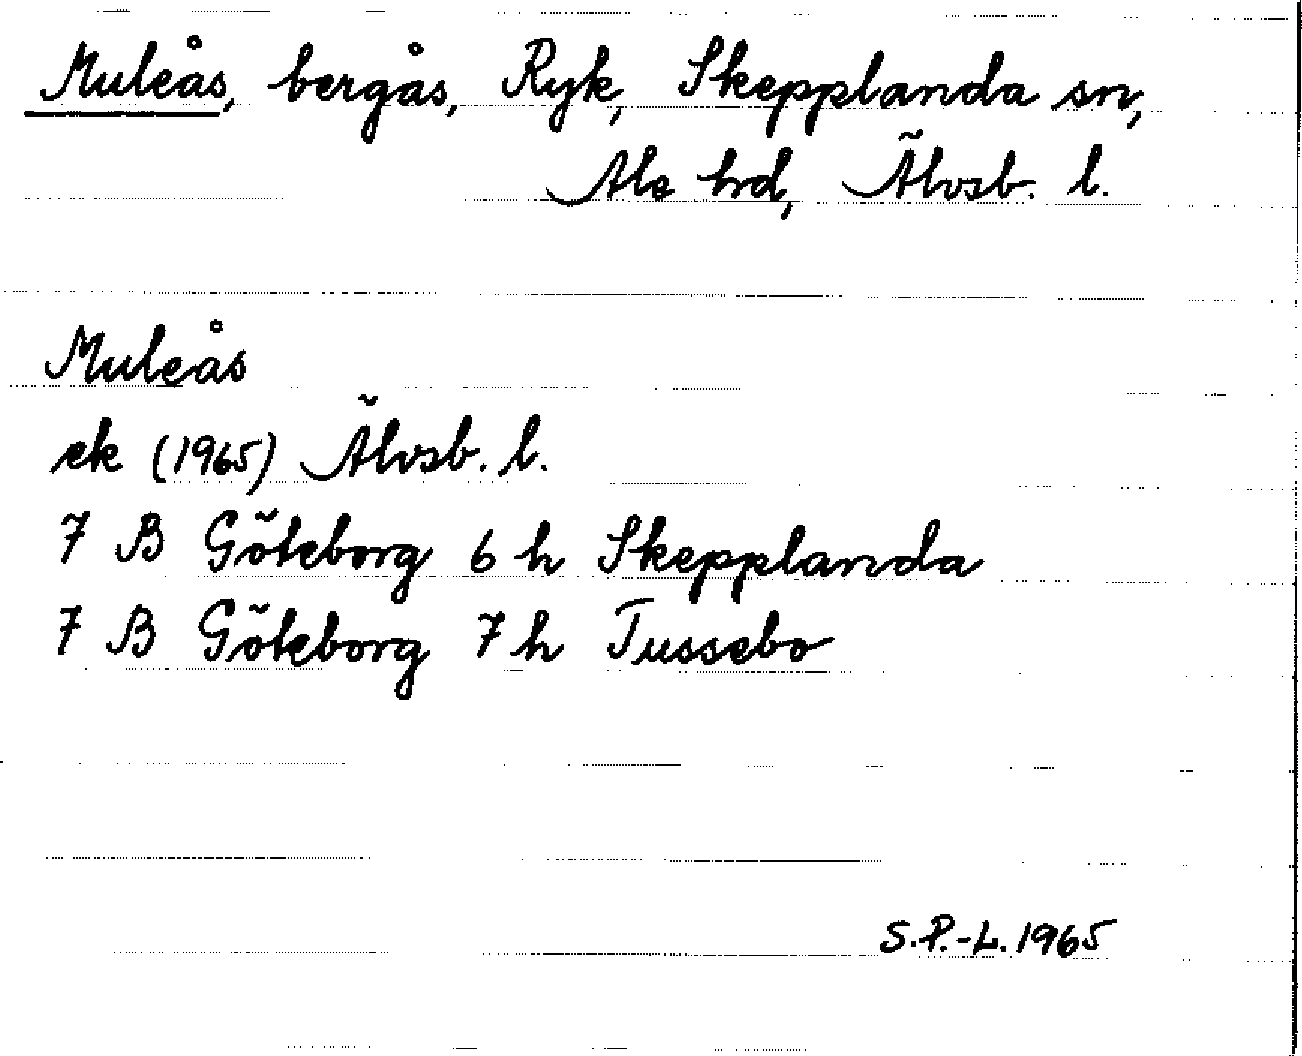 Muleås, bergås, Ryk, Skepplanda sn,
Ale hrd, Älvsb. l.
Muleås
ek (1965) Älvsb. l.
7 B Göteborg 6 h Skepplanda
7 B Göteborg 7 h Tussebo
S.P.-L. 1965